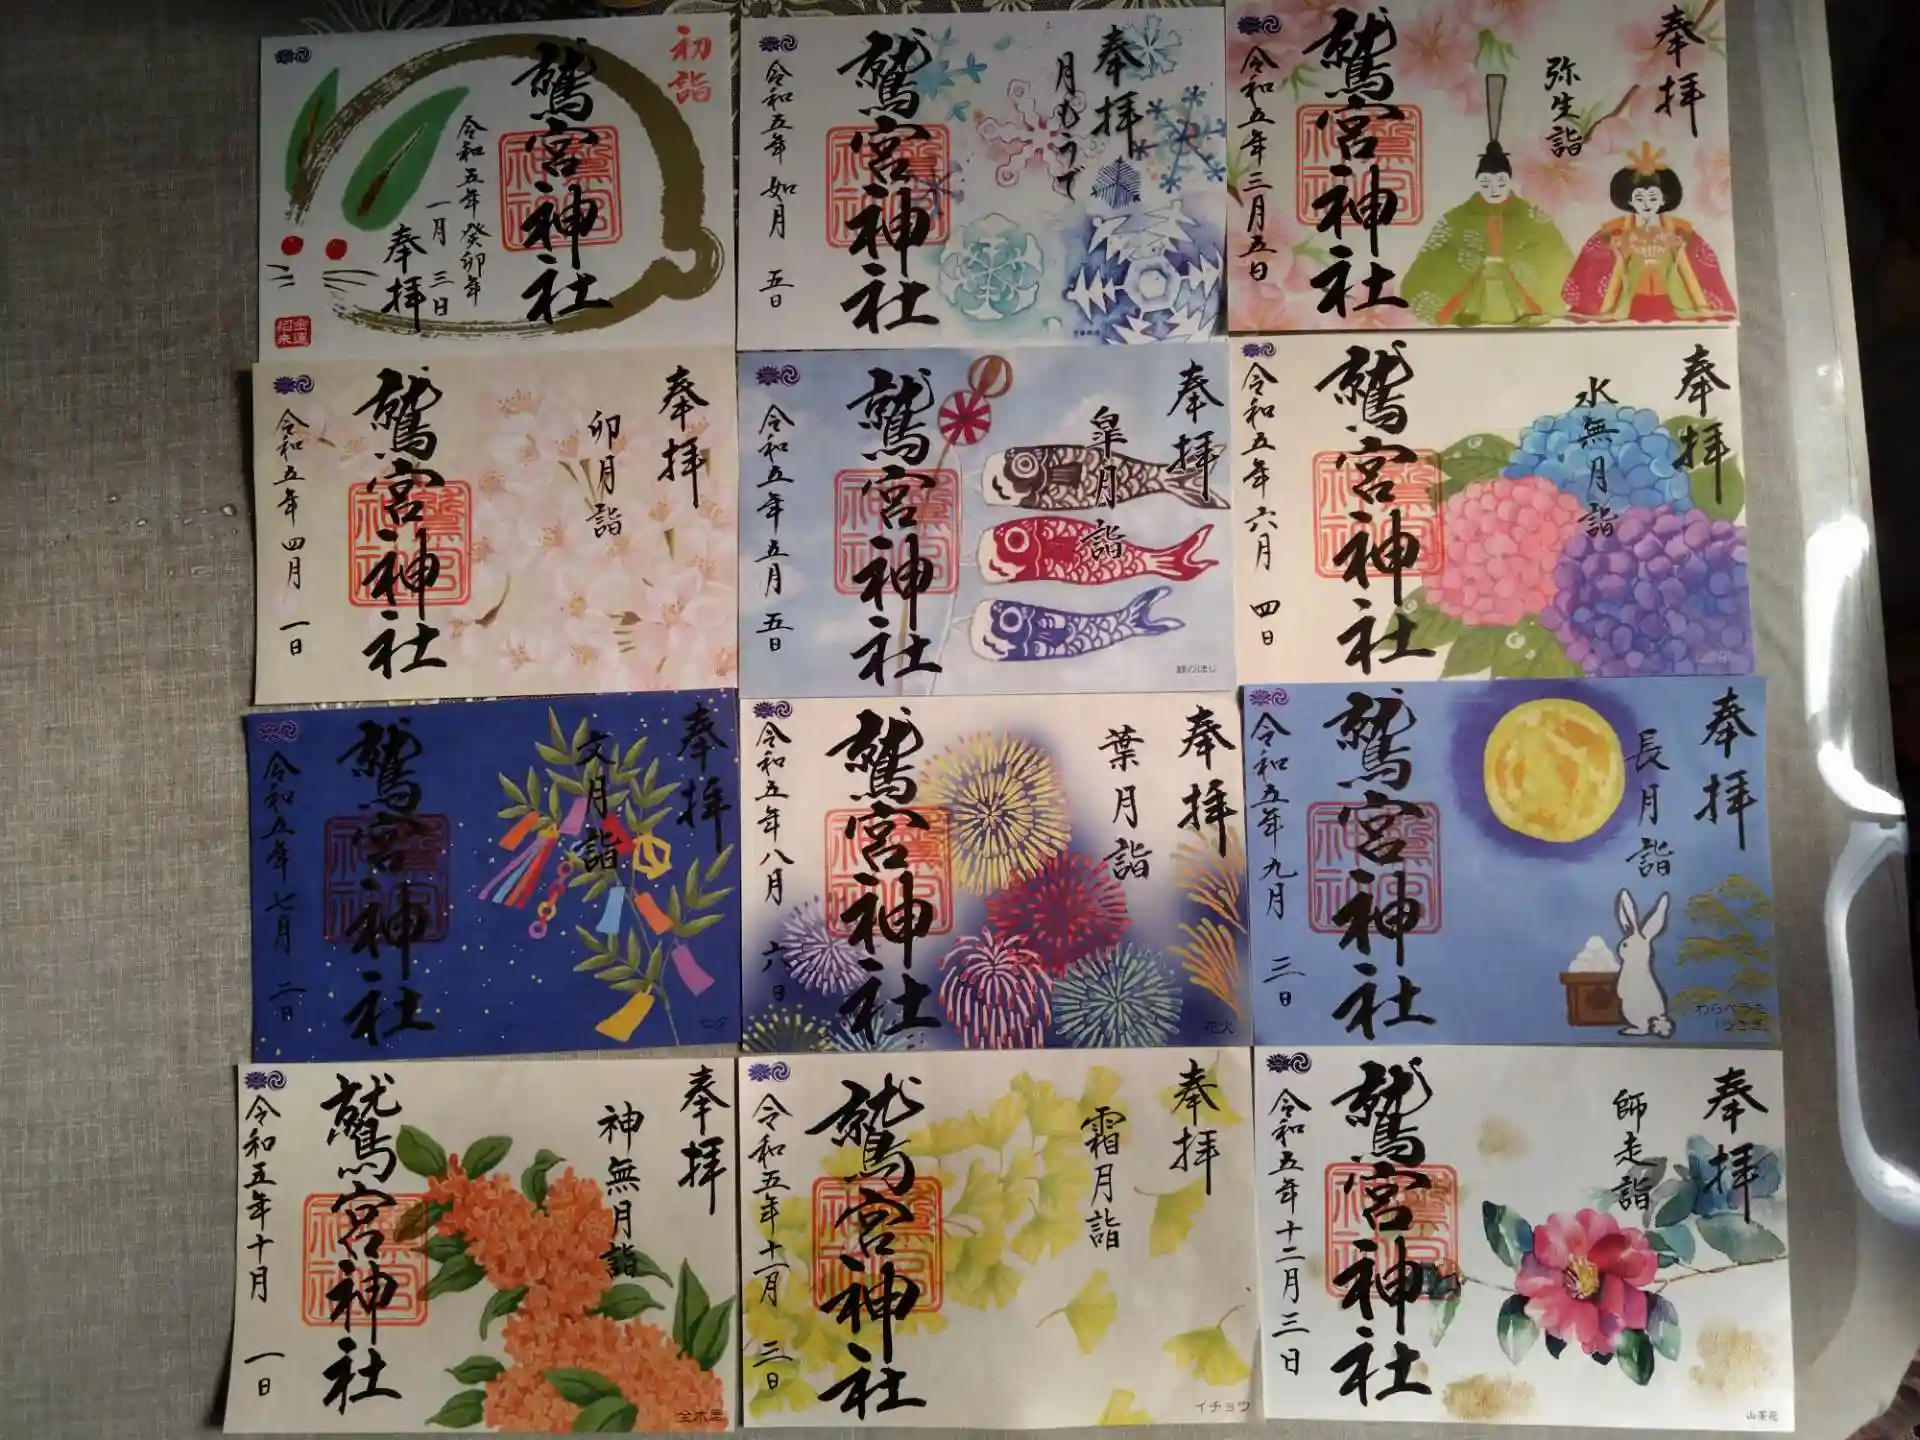 初詣
鷲宮神社
令和五年癸卯年
一月三日
奉拝
金運
招来
奉拝
月もうで
鷲宮神社
令和五年如月五日
奉拝
弥生詣
鷲宮神社
令和五年三月五日
奉拝
卯月詣
鷲宮神社
令和五年四月一日
奉拝
皐月詣
鷲宮神社
令和五年五月五日
鯉のぼり
奉拝
水無月詣
鷲宮神社
令和五年六月四日
奉拝
文月詣
鷲宮神社
令和五年七月二日
七夕
奉拝
葉月詣
鷲宮神社
令和五年八月六日
花火
奉拝
長月詣
鷲宮神社
令和五年九月三日
奉拝
神無月詣
鷲宮神社
令和五年十月一日
金木犀
奉拝
霜月詣
鷲宮神社
令和五年十一月三日
イチョウ
奉拝
師走詣
鷲宮神社
令和五年十二月三日
山茶花